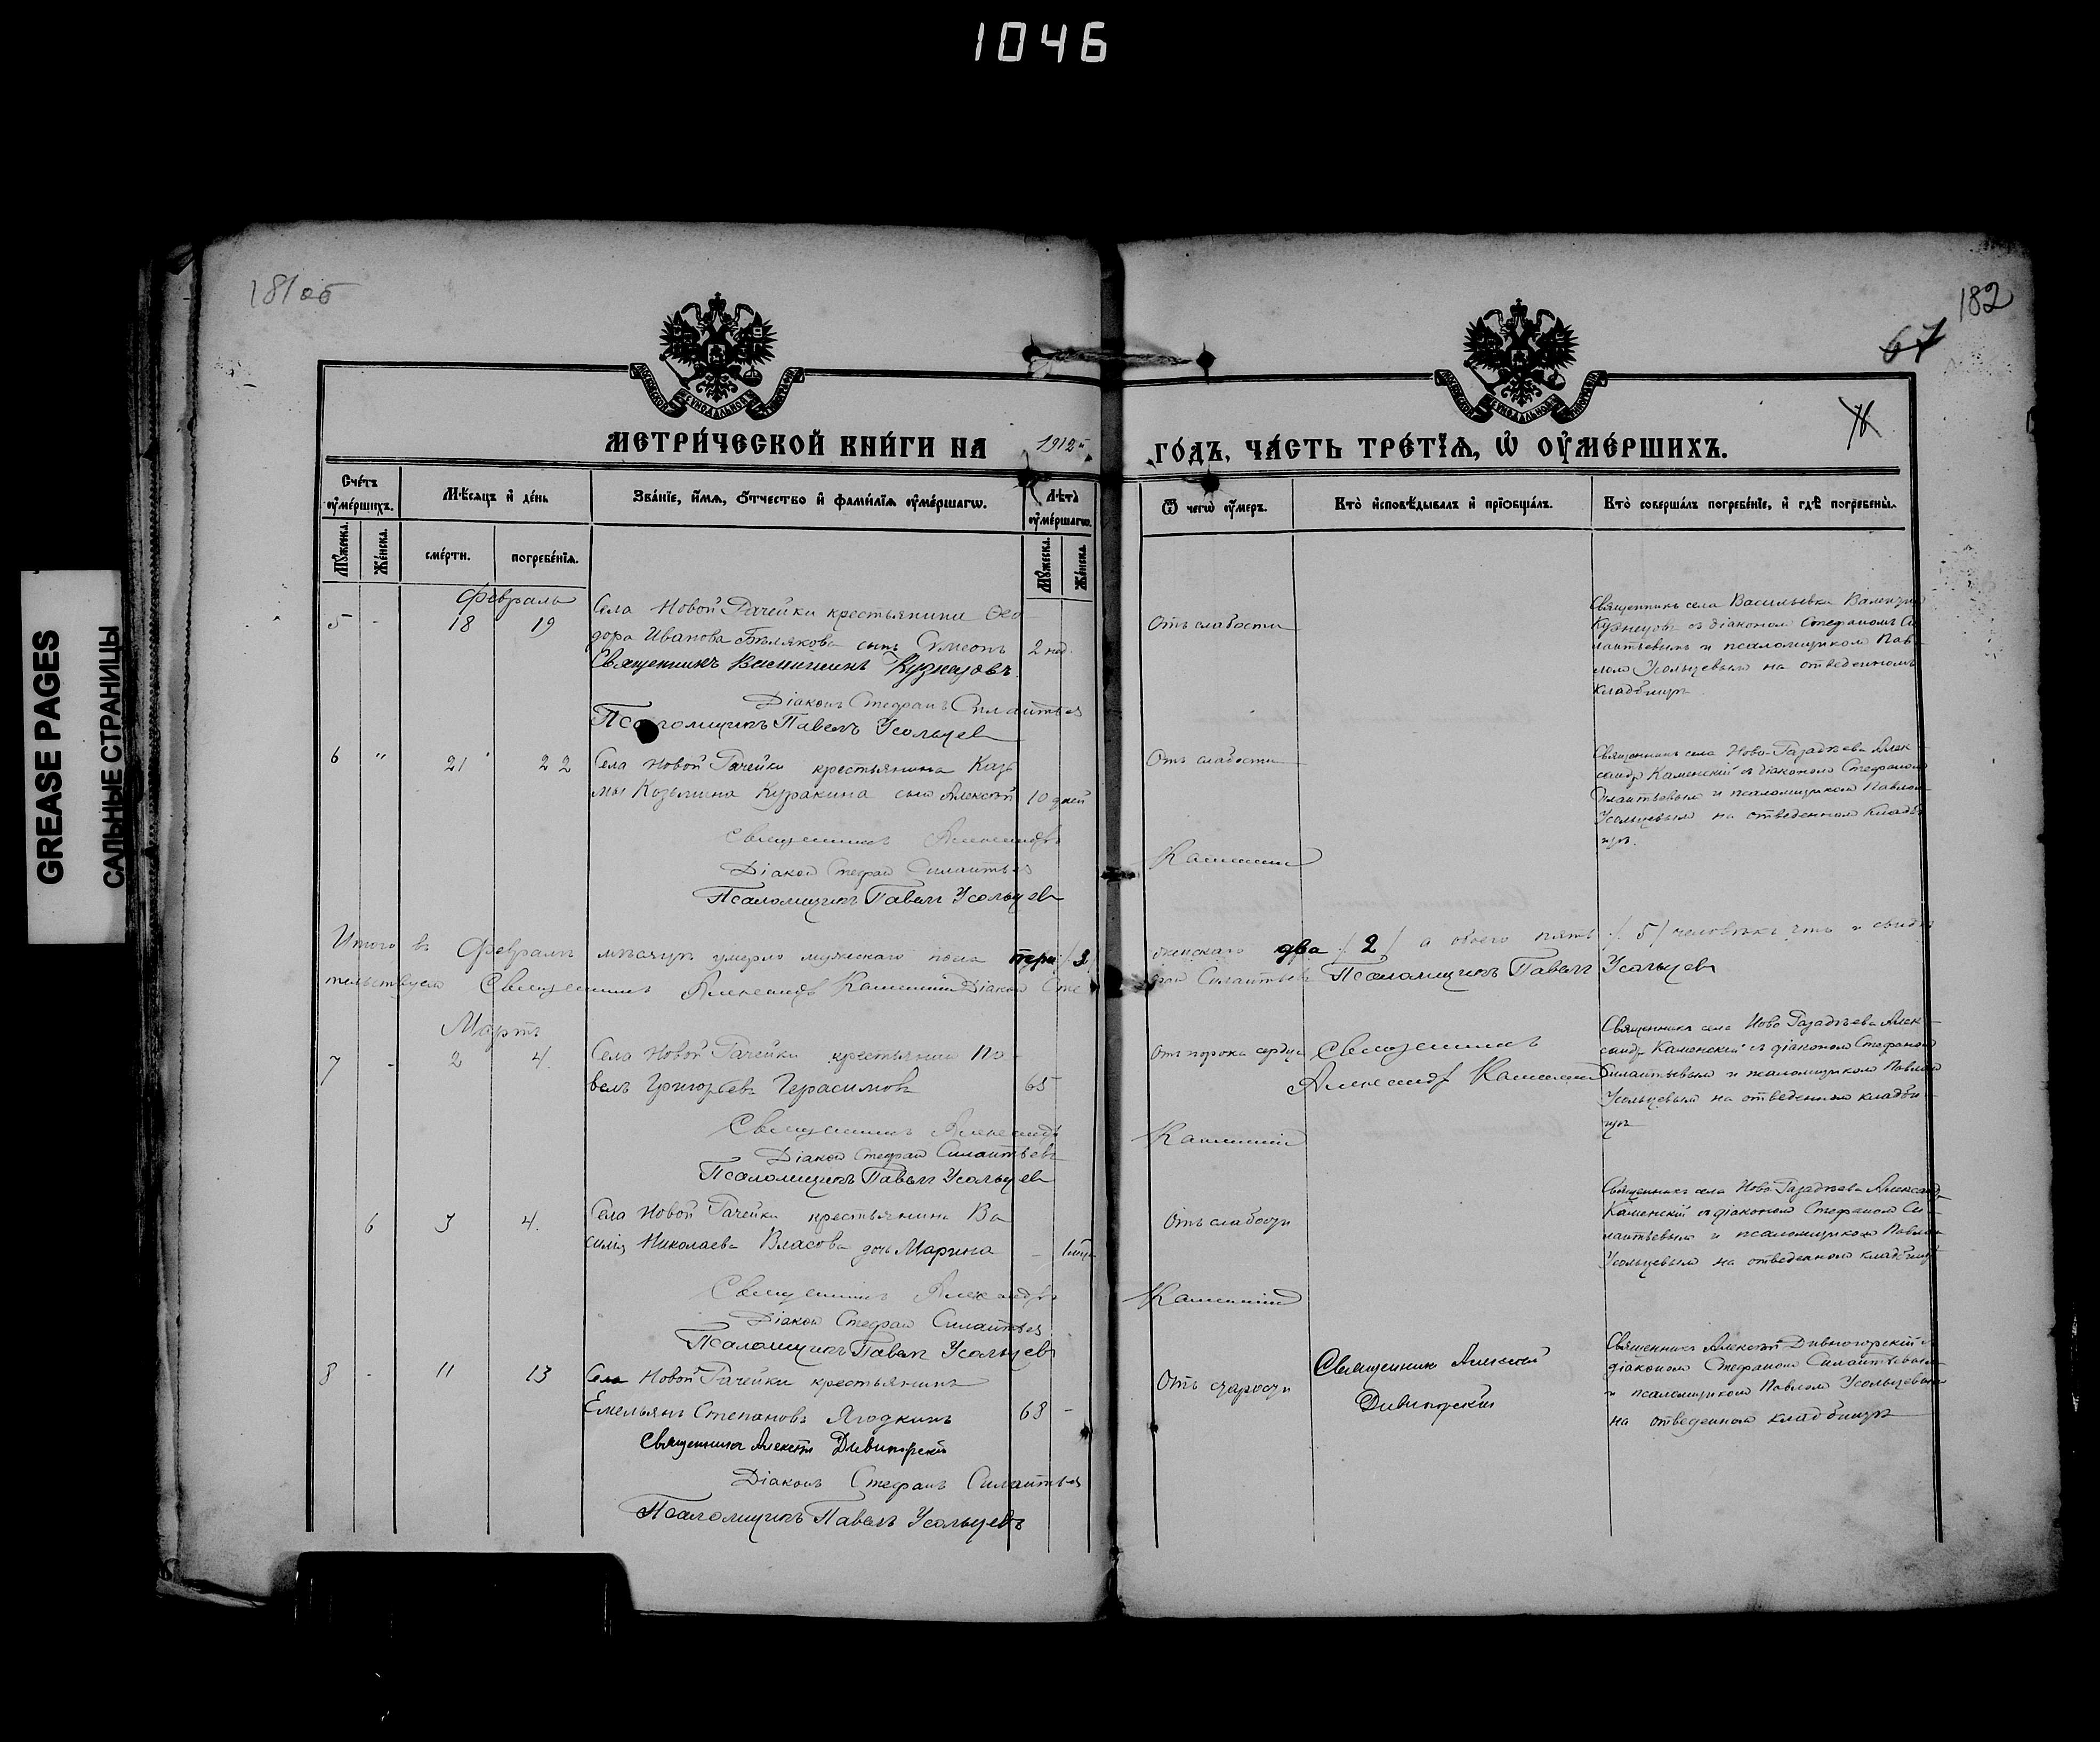 1046
GREASE PAGES
САЛЬНЫЕ СТРАНИЦЫ
181об
182
67
МЕТРИ́ЧЕСКОЙ КНИ́ГИ НА 1912й
ГО́ДЪ, ЧА́СТЬ ТРЕ́ТЇѦ, Ѡ҆ ОУ҆МЕ́РШИХЪ.
Сче́тъ оу҆ме́ршихъ.
Мѣ́сяцъ и҆ де́нь
Зва́нїе, и҆́мѧ, ѻ҆́тчество и҆ фами́лїѧ оу҆ме́ршагѡ.
Лѣ́та оу҆ме́ршагѡ.
Ѿ чегѡ̀ оу҆́меръ.
Кто̀ и҆сповѣ́дывалъ и҆ прїѻбща́лъ.
Кто̀ соверша́лъ погребе́нїе, и҆ гдѣ̀ погребены̀.
Мꙋ́жеска.
Же́нска.
сме́рти.
погребе́нїѧ.
Мꙋ́жеска.
Же́нска.
Февраль
5 - 18 19
Села Новой Рачейки крестьянина Ѳео
дора Иванова Бѣлякова сынъ Сѵмеонъ 2 нед.
Священникъ Валентинъ Кузнецовъ
Діаконъ Стефанъ Силантьевъ
Псаломщикъ Павелъ Усольцев
Отъ слабости
Священникъ села Васильевка Валентинъ
Кузнецовъ съ діакономъ Стефаномъ Си
лантьевымъ и псаломщикомъ Пав-
ломъ Усольцевымъ на отведенномъ
кладбищѣ.
6 " 21 22
Села Новой Рачейки крестьянина Кузь
мы Козьмина Куракина сынъ Алексѣй 10 дней
Священникъ Александръ Каменскій
Діакон Стефан Силантьев
Псаломщикъ Павелъ Усольцев
Отъ слабости
Священникъ села Ново-Разадѣева Алек-
сандр Каменскій съ діакономъ Стефаномъ
Силантьевымъ и псаломщикомъ Павлом
Усольцевымъ на отведенномъ кладби
щѣ.
Итого въ Февралѣ мѣсяцѣ умерло мужескаго пола три /3/ женскаго два /2/ а обоего пять /5/ человѣкъ, что и свидѣ
тельствуемъ Священникъ Александръ Каменскій Діакон Сте
фан Силантьевъ Псаломщикъ Павелъ Усольцев
Мартъ
7 - 2 4.
Села Новой Рачейки крестьянин Па-
велъ Григорьевъ Герасимовъ 65
Священникъ Александръ Каменскій
Діакон Стефан Силантьевъ
Псаломщикъ Павелъ Усольцев
Отъ порока сердца
Священникъ
Александр Каменскій
Священникъ села Ново Разадѣева Алек-
сандр Каменскій съ діакономъ Стефаномъ
Силантьевымъ и псаломщикомъ Павлом
Усольцевымъ на отведенномъ кладби-
щѣ
6 3 4.
Села Новой Рачейки крестьянина Ва
силія Николаева Власова дочь Марина -
Священникъ Александръ Каменскій
Діакон Стефан Силантьев
Псаломщикъ Павелъ Усольцев
Отъ слабости
Священникъ села Ново Разадѣева Александр
Каменскій съ діакономъ Стефаномъ Си-
лантьевымъ и псаломщикомъ Павлом
Усольцевымъ на отведенномъ кладбищѣ
8 - 11 13
Села Новой Рачейки крестьянинъ
Емельянъ Степановъ Ягодкинъ 68 -
Священникъ Алексѣй Дивногорскій
Діаконъ Стефанъ Силантьев
Псаломщикъ Павелъ Усольцевъ
Отъ старости
Священник Алексѣй
Дивногорскій
Священникъ Алексѣй Дивногорскій съ
діакономъ Стефаномъ Силантьевымъ
и псаломщикомъ Павлом Усольцевым
на отведенномъ кладбищѣ